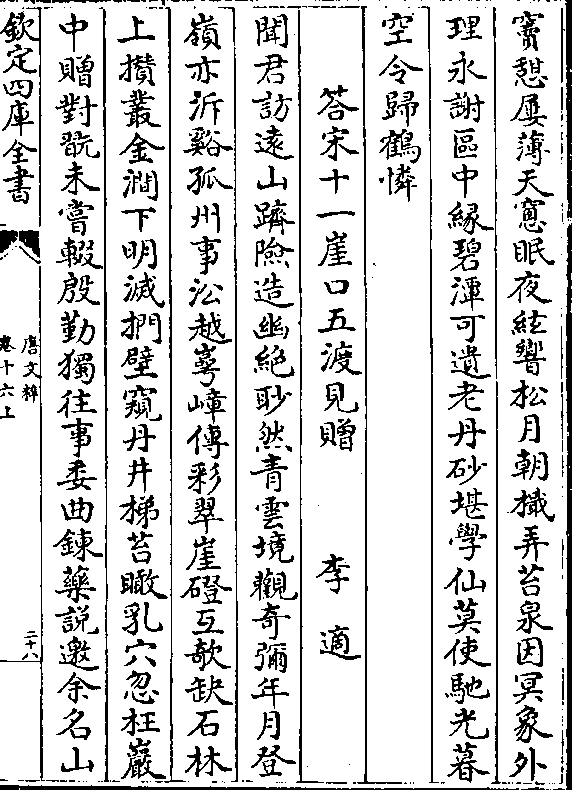 寶憇屢薄天窻眠夜絃響松月朝檝弄苔泉因冥象外
理永謝區中縁碧潭可遺老丹砂堪學仙莫使馳光暮
空令歸鶴憐
答宋十一崖口五渡見贈 李適
聞君訪遠山躋險造幽絶眇然青雲境觀奇彌年月登
嶺亦泝谿孤州事沿越崿嶂傳彩翠崖磴互欹缺石林
上攅叢金澗下明滅捫壁窺丹井梯苔瞰乳穴忽枉巖
中贈對翫未嘗輟殷勤獨往事委曲鍊藥説邀余名山
欽定四庫全書
唐文粹
卷十六上
二十八